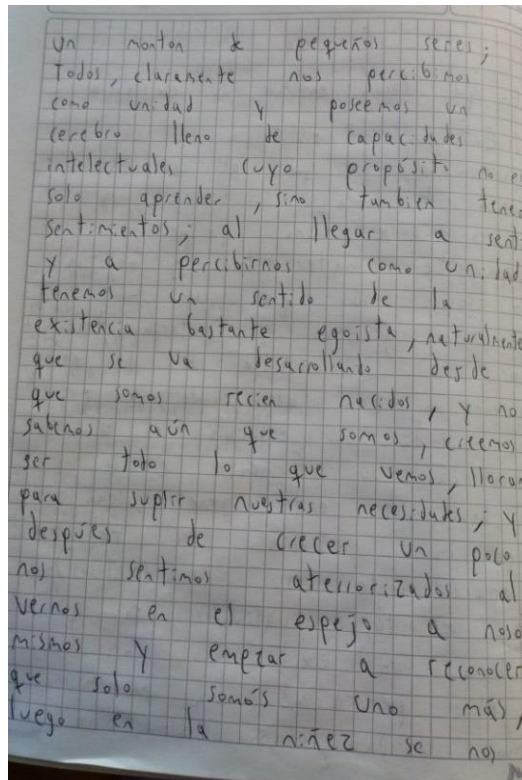 un monton de pequeños seres;
Todos, claramente nos percibimos
como unidad y poseemos un
cerebro lleno de capacidades
intelectuales cuyo proposito no e
solo aprender, sino tambien tene
sentimientos; al llegar a sent
y a percibirnos como unidad
tenemos un sentido de la
existencia bastante egoista, naturalmente
que se va desarrollando desde
que somos recien nacidos, y no
sabemos aún que somos, creemos
ser todo lo que vemos, llora
para suplir nuestras necesidades, y
despúes de crecer un poco
nos sentimos aterrorizados al
vernos en el espejo a noso
mismos y empezar a reconocer
que solo somós uno más,
luego en la niñez se nos